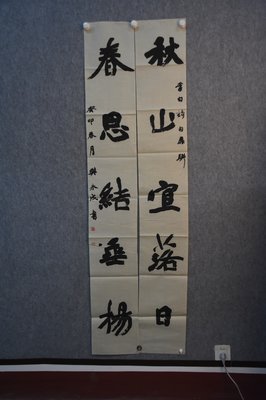 秋山宜落日
春思結垂楊
癸卯春月